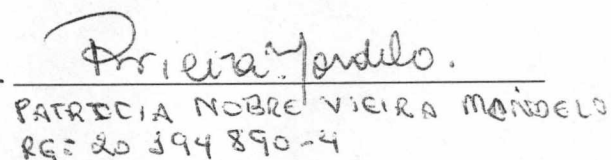 PVieira Mondelo.
PATRICIA NOBRE VIEIRA MONDELO
RG: 20 394 890-4